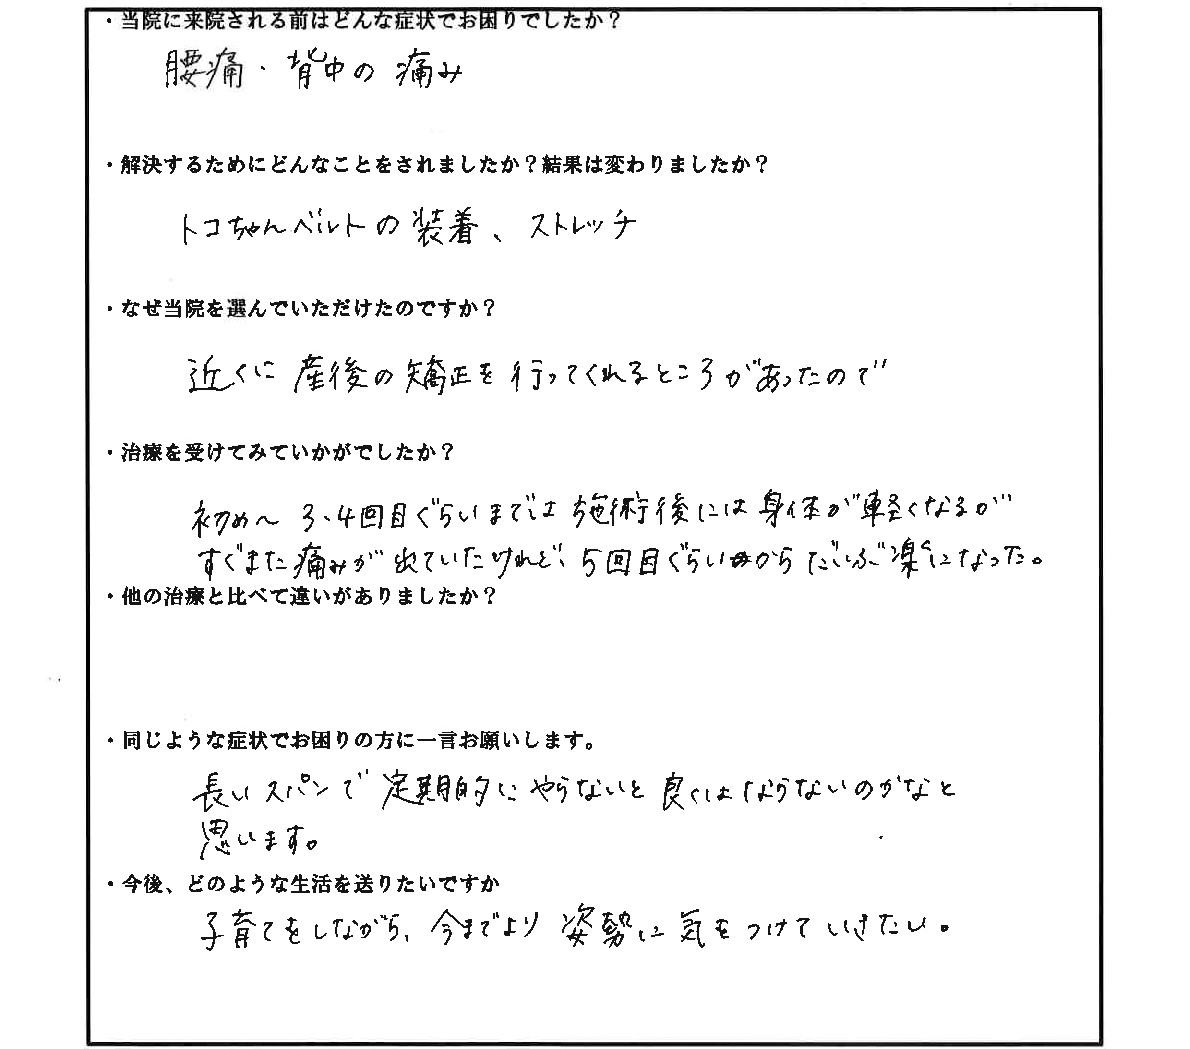 ・当院に来院される前はどんな症状でお困りでしたか？
腰痛・背中の痛み
・解決するためにどんなことをされましたか？結果は変わりましたか？
トコちゃんベルトの装着、ストレッチ
・なぜ当院を選んでいただけたのですか？
近くに産後の矯正を行ってくれるところがあったので
・治療を受けてみていかがでしたか？
初め〜3・4回目ぐらいまでは施術後には身体が軽くなるが
すぐまた痛みが出ていたけれど、5回目ぐらいからだいぶ楽になった。
・他の治療と比べて違いがありましたか？
・同じような症状でお困りの方に一言お願いします。
長いスパンで定期的にやらないと良くはならないのかなと
思います。
・今後、どのような生活を送りたいですか
子育てをしながら、今までより姿勢に気をつけていきたい。